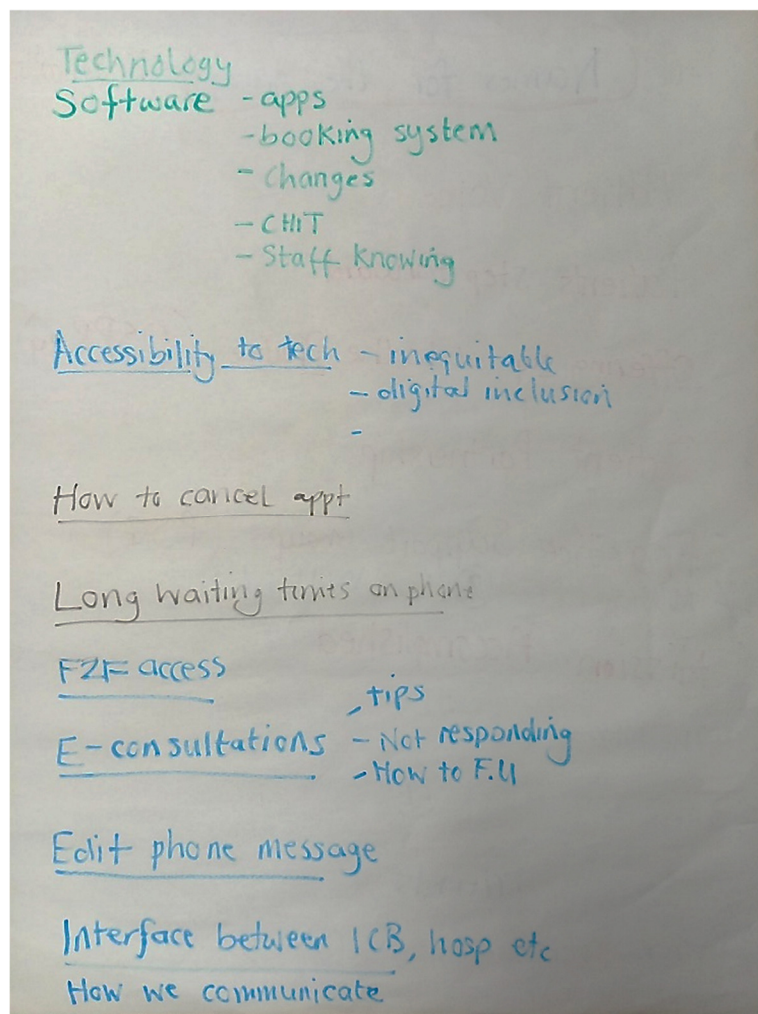 Technology
Software - apps
- booking system
- changes
- CHIT
- Staff knowing
Accessibility to tech - inequitable
- digital inclusion
-
How to cancel appt
Long waiting times on phone
F2F access
- tips
E-consultations - Not responding
- How to F.U
Edit phone message
Interface between ICB, hosp etc
How we communicate